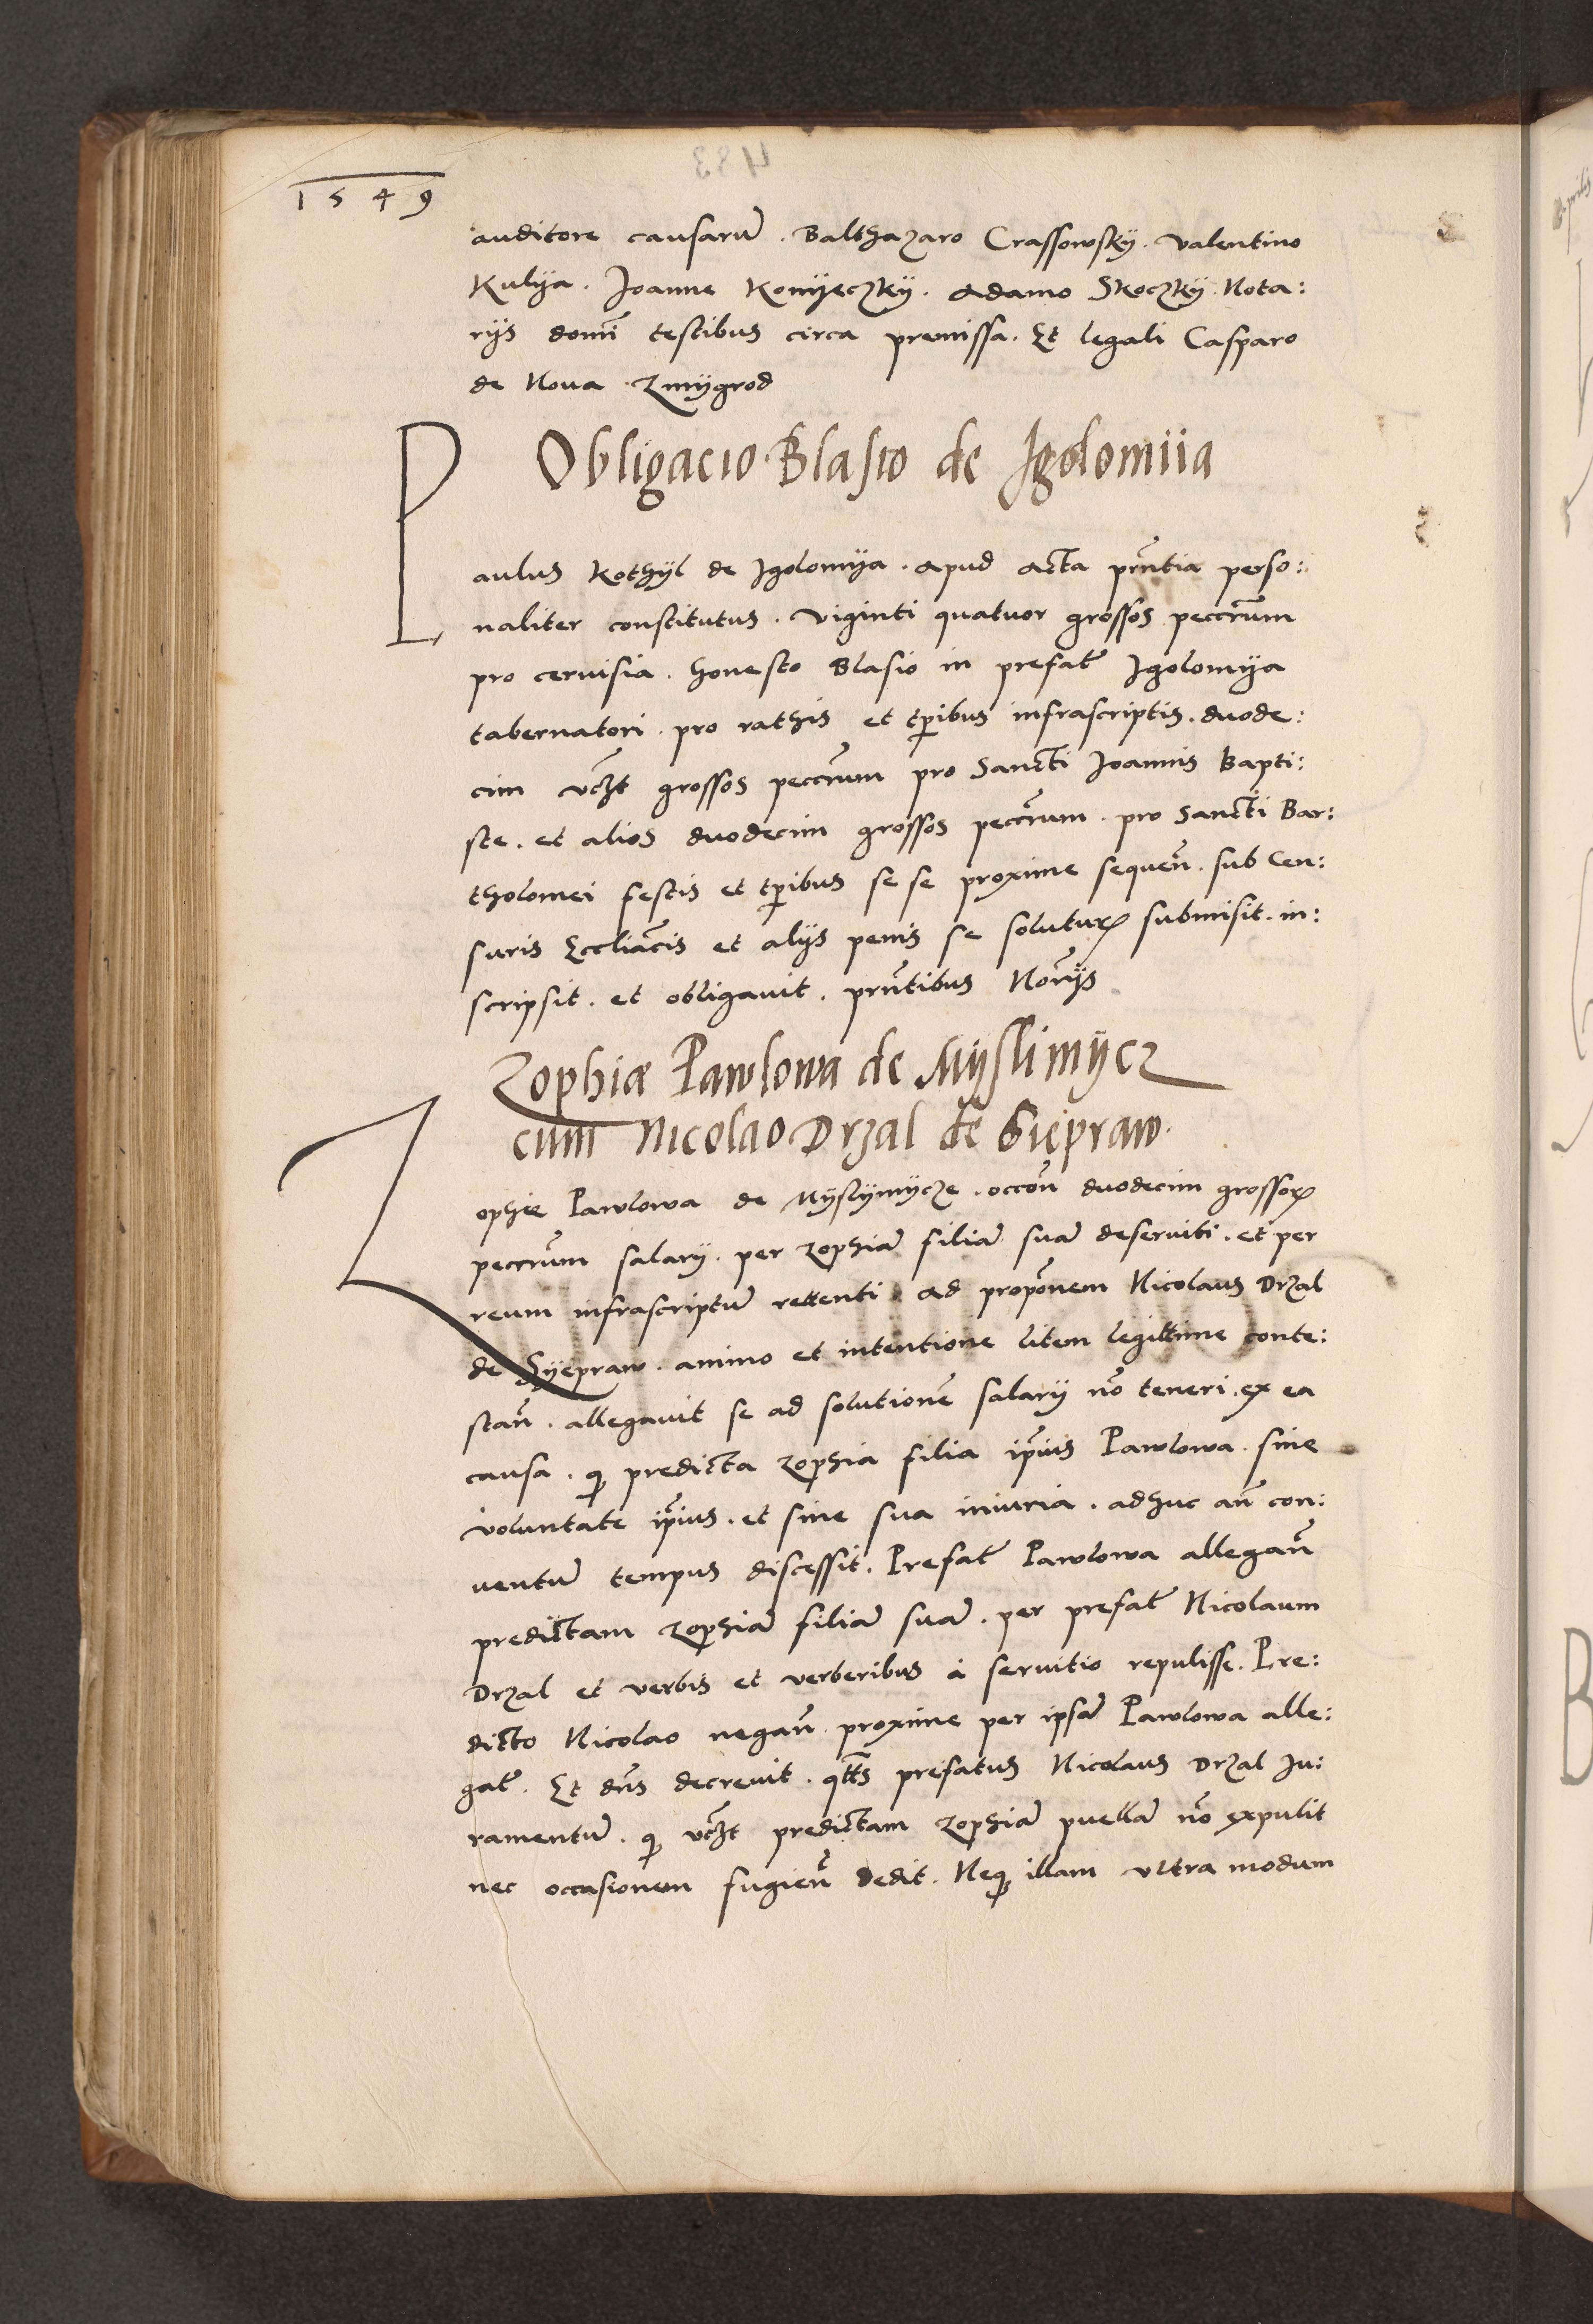 1549
auditore causarū . Balthazaro Crassowsky . Valentino
Kulya . Joanne Konyeczky . Adamo Skoczky . Nota:
rijs domī testibus circa premissa . Et legali Casparo
de Nova Zmygrod
Obligacio Blasio de Igolomiia
Paulus Kothyl de Igolomya . apud acta prñtia perso:
naliter constitutus . viginti quatuor grossos peccr̃um
pro cervisia . honesto Blasio in prefat̃ Igolomya
tabernatori . pro rathis et tp̃ibus infrascriptis . duode:
cim vcz̃t grossos peccr̃um pro Sancti Joannis Bapti:
ste . et alios duodecim grossos peccr̃um . pro Sancti Bar:
tholomei festis et tp̃ibus se se proxime sequeñ . sub Cen:
suris Eccliac̃is et alijs penis se soluturꝝ submisit . in:
scripsit . et obligavit . prñtibus Nor̃ijs
Zophiæ Pawlowa de Myslimÿcz
cum Nicolao Drzal de Siepraw
Zophie Pawlowa de Myslymycze . occoñ duodecim grossoꝝ
peccr̃um salarij . per Zophiā filiā suā deserviti . et per
reum infrascriptū rettenti ad propoñem Nicolaus Drzal
de Syepraw . animo et intentione litem legittime conte:
stañ . allegavit se ad solutionē salarij nō teneri . ex ea
causa . ꝙ predicta Zophia filia ip̃ius Pawlowa . sine
voluntate ip̃ius . et sine sua iniuria . adhuc añ con:
ventū tempus discessit . Prefat̃ Pawlowa allegañ
predictam Zophiā filiā suā . per prefat̃ Nicolaum
Drzal et verbis et verberibus à servitio repulisse . Pre:
dicto Nicolao negañ . proxime per ipsā Pawlowa alle:
gat̃ . Et dñs decrevit . qtt̃s prefatus Nicolaus Drzal Ju:
ramentū . ꝙ vcz̃t predictam Zophiā puellā nō expulit
nec occasionem fugieñ dedit . Neqꝫ illam ultra modum